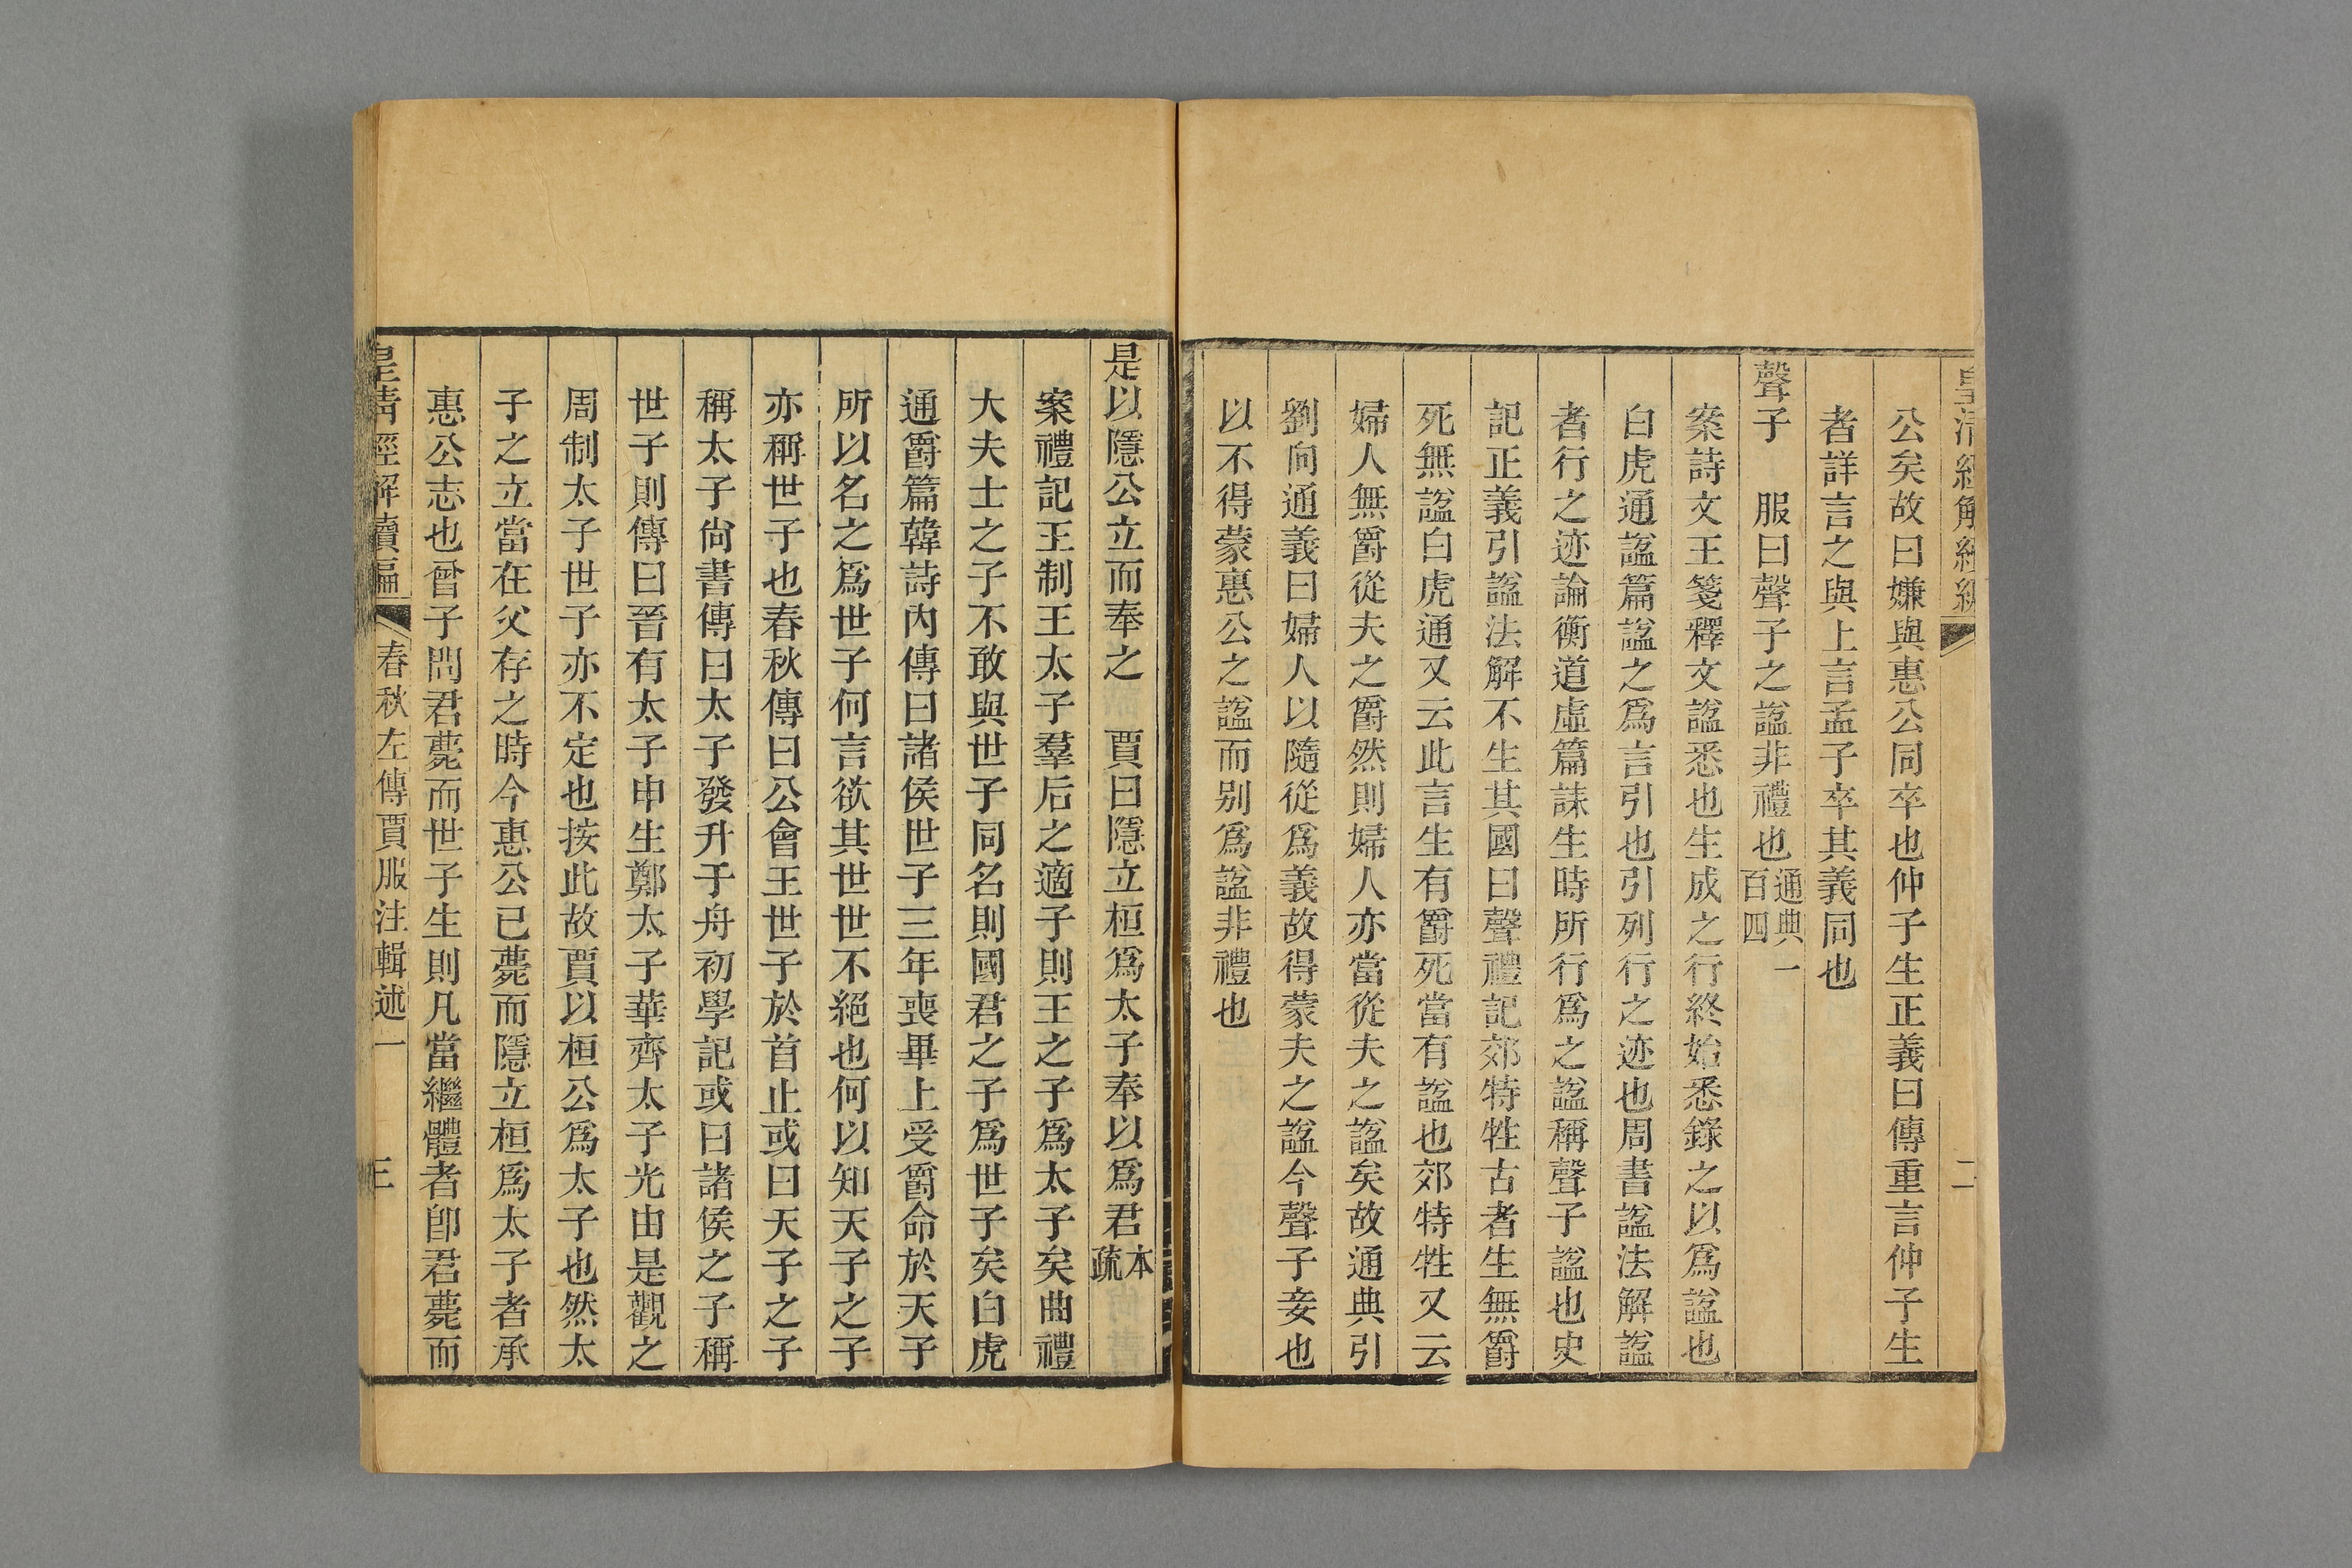 皇清經解續編
二
公矣故曰嫌與惠公同卒也仲子生正義曰傳重言仲子生
者詳言之與上言孟子卒其義同也
聲子　服曰聲子之諡非禮也通典一百四
案詩文王箋釋文諡悉也生成之行終始悉錄之以爲諡也
白虎通諡篇諡之爲言引也引列行之迹也周書諡法解諡
者行之迹論衡道虛篇誄生時所行爲之諡稱聲子諡也史
記正義引諡法解不生其國曰聲禮記郊特牲古者生無爵
死無諡白虎通又云此言生有爵死當有諡也郊特牲又云
婦人無爵從夫之爵然則婦人亦當從夫之諡矣故通典引
劉向通義曰婦人以隨從爲義故得蒙夫之諡今聲子妾也
以不得蒙惠公之諡而别爲諡非禮也
是以隱公立而奉之　賈曰隱立桓爲太子奉以爲君本疏
案禮記王制王太子羣后之適子則王之子爲太子矣曲禮
大夫士之子不敢與世子同名則國君之子爲世子矣白虎
通爵篇韓詩內傳曰諸侯世子三年喪畢上受爵命於天子
所以名之爲世子何言欲其世世不絕也何以知天子之子
亦稱世子也春秋傳曰公會王世子於首止或曰天子之子
稱太子尙書傳曰太子發升于舟初學記或曰諸侯之子稱
世子則傳曰晉有太子申生鄭太子華齊太子光由是觀之
周制太子世子亦不定也按此故賈以桓公爲太子也然太
子之立當在父存之時今惠公已薨而隱立桓爲太子者承
惠公志也曾子問君薨而世子生則凡當繼體者卽君薨而
皇清經解續編
春秋左傳賈服注輯述一
三